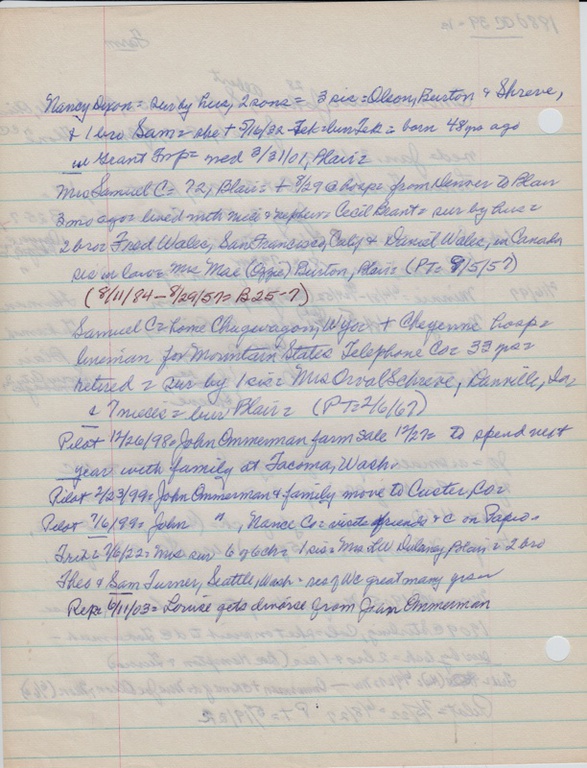 Nancy Dixon = sur by hus, 2 sons = 3 sis = Olson, Burton & Shreve,
& 1 bro Sam = she + 5/16/32 Tek = bur Tek = born 48 yrs ago
in Grant Imp = med 3/31/01, Blair =
Mrs Samuel C = 72, Blair = + 8/29 @ hosp = from Denver to Blair
3 mo ago = lived with niece & nephew = Cecil Grant = sur by hus =
2 bro = Fred Wales, San Francisco, Calif & Daniel Wales, in Canada
sis in law = Mrs Mae (Ogge) Burton, Blair = (PT = 9/5/57)
(8/11/84 - 8/29/57 = B25-7)
Samuel C = home Chugwagon, Wyo = + Cheyenne hosp =
lineman for Mountain States Telephone Co = 33 yrs =
retired = sur by 1 sis = Mrs Orval Schreve, Danville, Ia,
& 7 nieces = bur Blair = (PT = 2/6/67)
Pilot 12/26/98 = John Ommerman farm sale 12/27 = to spend next
year with family at Tacoma, Wash.
Pilot 2/23/99 = John Ommerman & family move to Custer Co =
Pilot 7/6/99 = John " , Nance Co = visits friends & c on Papio =
Trib = 7/6/22 = Mrs sur 6 ch = 1 sis = Mrs Dulaney, Blair = 2 bro
Theo & Sam Turner, Seattle, Wash = res of WC great many yrs =
Rep = 6/11/03 = Louise gets divorse from Jean Ommerman